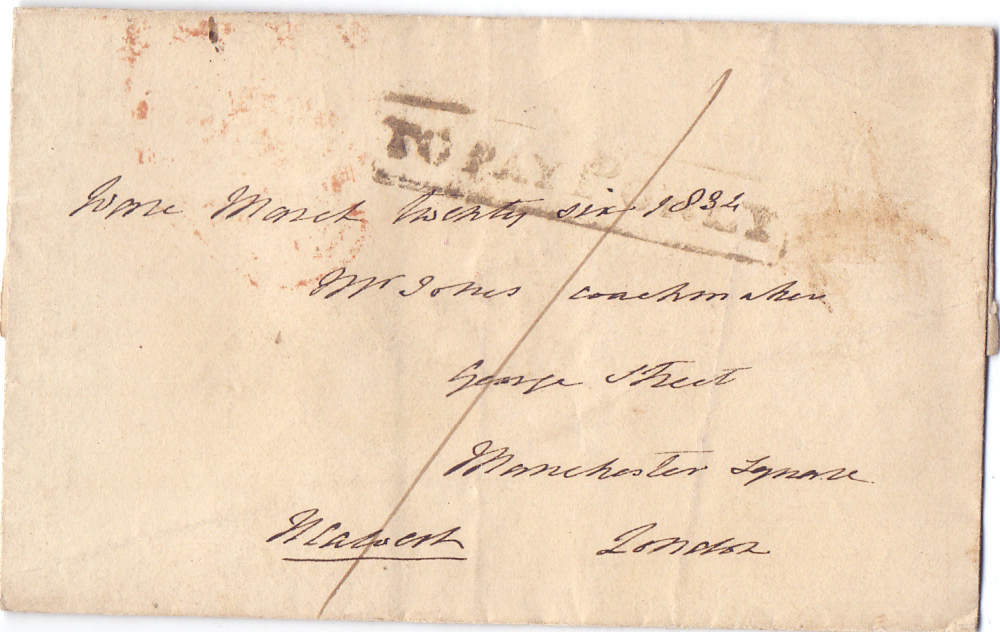 TO PAY PENNY
Ware March twenty six 1834
Mr Jones coachmaker
George Street
Manchester Square
NCalvert London